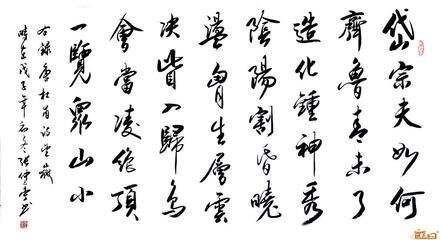 岱宗夫如何
齊魯青未了
造化鍾神秀
陰陽割昏曉
盪胷生層雲
决眥入歸鳥
會當凌絕頂
一覽衆山小
右録唐杜甫詩望嶽
時在戊子年書